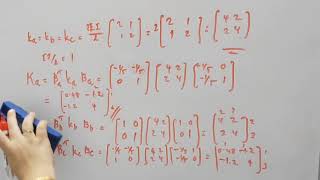 ka = kb = kc = 2EI/L [2 1 1 2] = 2 [2 1 1 2] = [4 2 2 4]
EI/L = 1
Ka = Ba^T ka Ba = [-1/5 -1/5 1 0] [4 2 2 4] [-1/5 0 -1/5 1]
= [0.48 -1.2 -1.2 4]
Bb^T kb Bb = [1 0 0 1] [4 2 2 4] [1 0 0 1] = [4 2 2 4] 2 3
Bc^T kc Bc = [-1/5 -1/5 1 0] [4 2 2 4] [-1/5 1 -1/5 0] = [0.48 -1.2 -1.2 4] 1 3